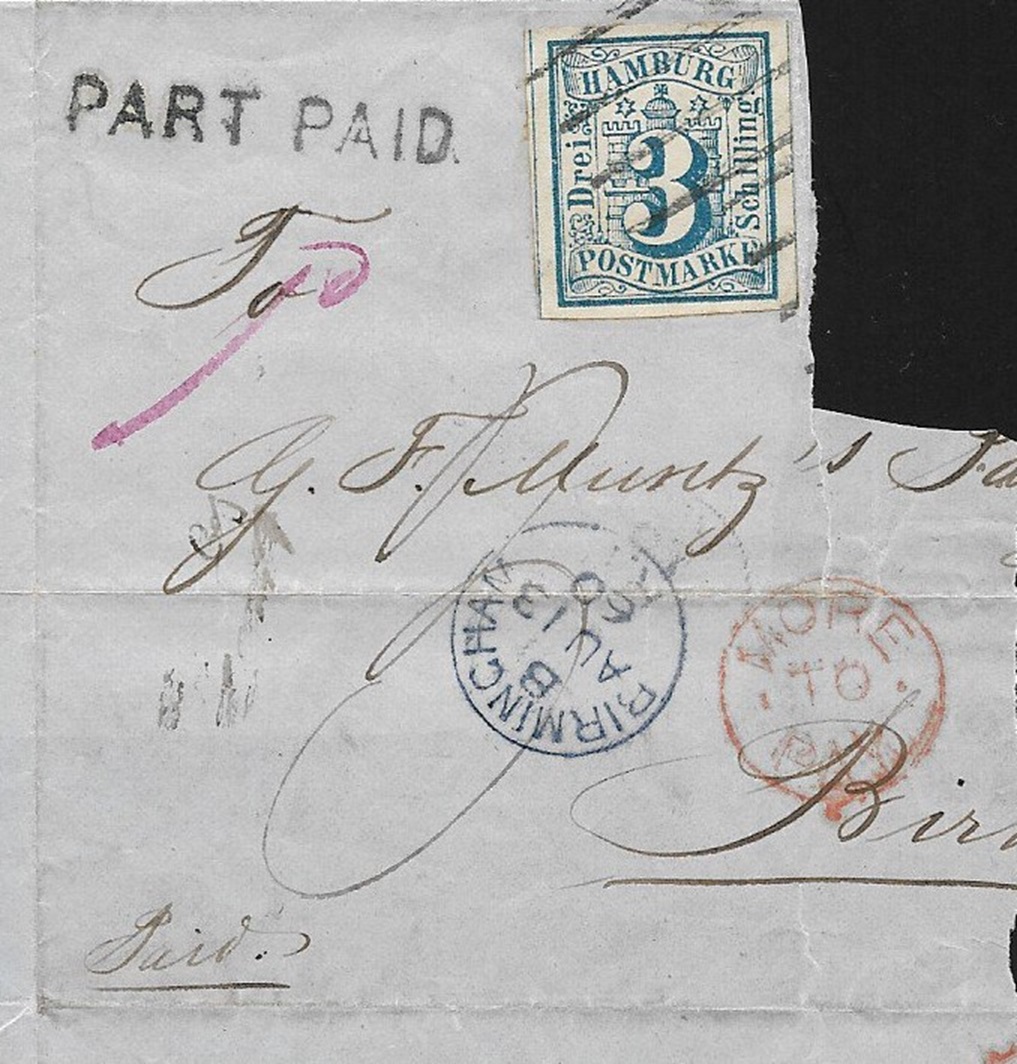 PART PAID
HAMBURG
Drei
3
Schilling
POSTMARKE
To
G. F. Muntz's
BIRMINGHAM
B
AU 13
60
MORE
TO
PAY
Paid.